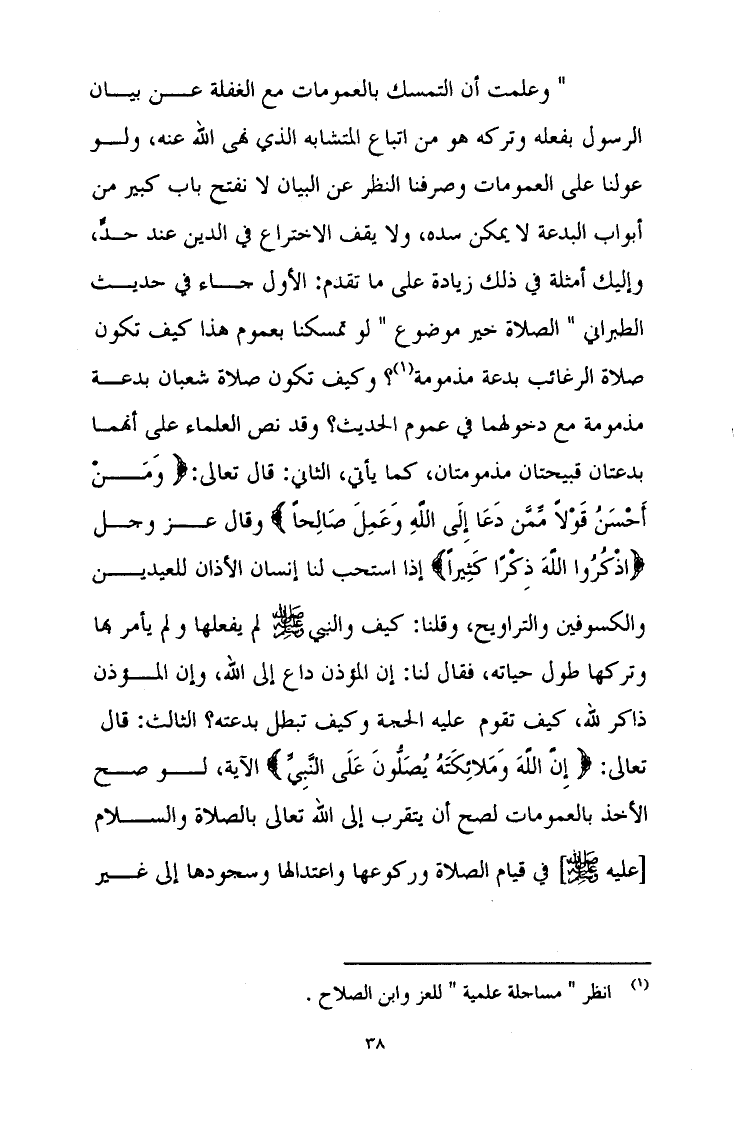 " وعلمت أن التمسك بالعمومات مع الغفلة عـــن بيـــان
الرسول بفعله وتركه هو من اتباع المتشابه الذي نهى الله عنه، ولـــو
عولنا على العمومات وصرفنا النظر عن البيان لا نفتح باب كبير من
أبواب البدعة لا يمكن سده، ولا يقف الاختراع في الدين عند حدٍّ،
وإليك أمثلة في ذلك زيادة على ما تقدم: الأول جـــاء في حديـــث
الطبراني " الصلاة خير موضوع " لو تمسكنا بعموم هذا كيف تكون
صلاة الرغائب بدعة مذمومة(١)؟ وكيف تكون صلاة شعبان بدعـــة
مذمومة مع دخولهما في عموم الحديث؟ وقد نص العلماء على أنهمـــا
بدعتان قبيحتان مذمومتان، كما يأتي، الثاني: قال تعالى:﴿ وَمَـــنْ
أَحْسَنُ قَوْلاً مِّمَّن دَعَا إِلَى اللَّهِ وَعَمِلَ صَالِحاً ﴾ وقال عـــز وجـــل
﴿اذْكُرُوا اللَّهَ ذِكْرًا كَثِيراً﴾ إذا استحب لنا إنسان الأذان للعيديـــن
والكسوفين والتراويح، وقلنا: كيف والنبي ﷺ لم يفعلها و لم يأمر بها
وتركها طول حياته، فقال لنا: إن المؤذن داع إلى الله، وإن المـــؤذن
ذاكر لله، كيف تقوم عليه الحجة وكيف تبطل بدعته؟ الثالث: قال
تعالى: ﴿ إِنَّ اللَّهَ وَمَلائِكَتَهُ يُصَلُّونَ عَلَى النَّبِيِّ﴾ الآية، لـــو صـــح
الأخذ بالعمومات لصح أن يتقرب إلى الله تعالى بالصلاة والســـلام
[عليه ﷺ] في قيام الصلاة وركوعها واعتدالها وسجودها إلى غـــير
(١) انظر " مساجلة علمية " للعز وابن الصلاح .
٣٨